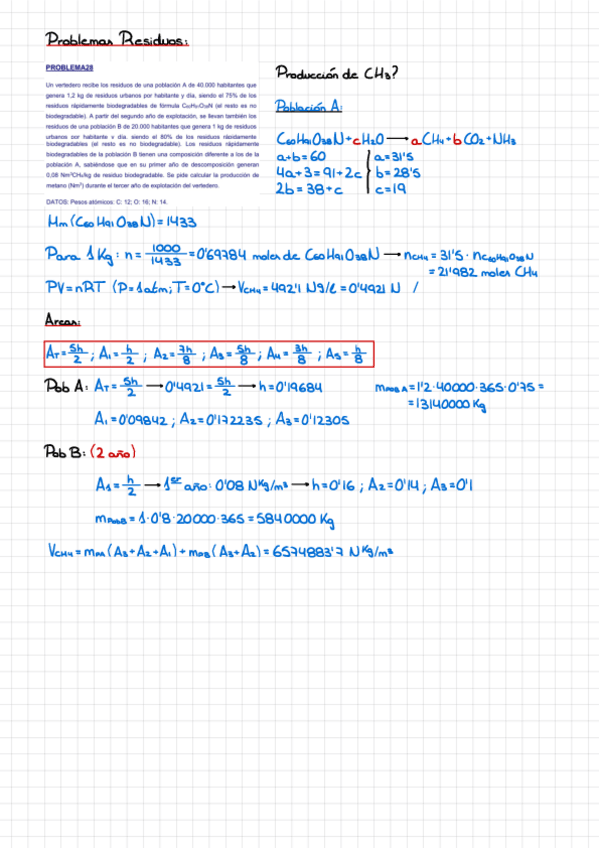 Problemas Residuos:
PROBLEMA28
Un vertedero recibe los residuos de una población A de 40.000 habitantes que
genera 1,2 kg de residuos urbanos por habitante y día, siendo el 75% de los
residuos rápidamente biodegradables de fórmula C₆₀H₉₁O₃₈N (el resto es no
biodegradable). A partir del segundo año de explotación, se llevan también los
residuos de una población B de 20.000 habitantes que genera 1 kg de residuos
urbanos por habitante y día, siendo el 80% de los residuos rápidamente
biodegradables (el resto es no biodegradable). Los residuos rápidamente
biodegradables de la población B tienen una composición diferente a los de la
población A, sabiéndose que en su primer año de descomposición generan
0,08 Nm³CH₄/kg de residuo biodegradable. Se pide calcular la producción de
metano (Nm³) durante el tercer año de explotación del vertedero.
DATOS: Pesos atómicos: C: 12; O: 16; N: 14.
Producción de CH₃?
Población A:
C₆₀H₉₁O₃₈N + cH₂O → aCH₄ + bCO₂ + NH₃
a+b=60 a=31'5
4a+3=91+2c b=28'5
2b=38+c c=19
Mm (C₆₀H₉₁O₃₈N) = 1433
Para 1 Kg: n = 1000/1433 = 0'69784 moles de C₆₀H₉₁O₃₈N → nCH₄ = 31'5 · nC₆₀H₉₁O₃₈N
= 21'982 moles CH₄
PV=nRT (P=1atm; T=0°C) → VCH₄ = 492'1 Ng/l = 0'4921 N /
Areas:
AT = 5h/2 ; A₁ = h/2 ; A₂ = 7h/8 ; A₃ = 5h/8 ; A₄ = 3h/8 ; A₅ = h/8
Pob A: AT = 5h/2 → 0'4921 = 5h/2 → h = 0'19684 mPOB A = 1'2·40000·365·0'75 =
= 13140000 Kg
A₁ = 0'09842 ; A₂ = 0'172235 ; A₃ = 0'12305
Pob B: (2 año)
A₁ = h/2 → 1er año: 0'08 NKg/m³ → h = 0'16 ; A₂ = 0'14 ; A₃ = 0'1
mPOB B = 1·0'8·20000·365 = 5840000 Kg
VCH₄ = mPA (A₃+A₂+A₁) + mPB (A₃+A₂) = 6574883'7 NKg/m³